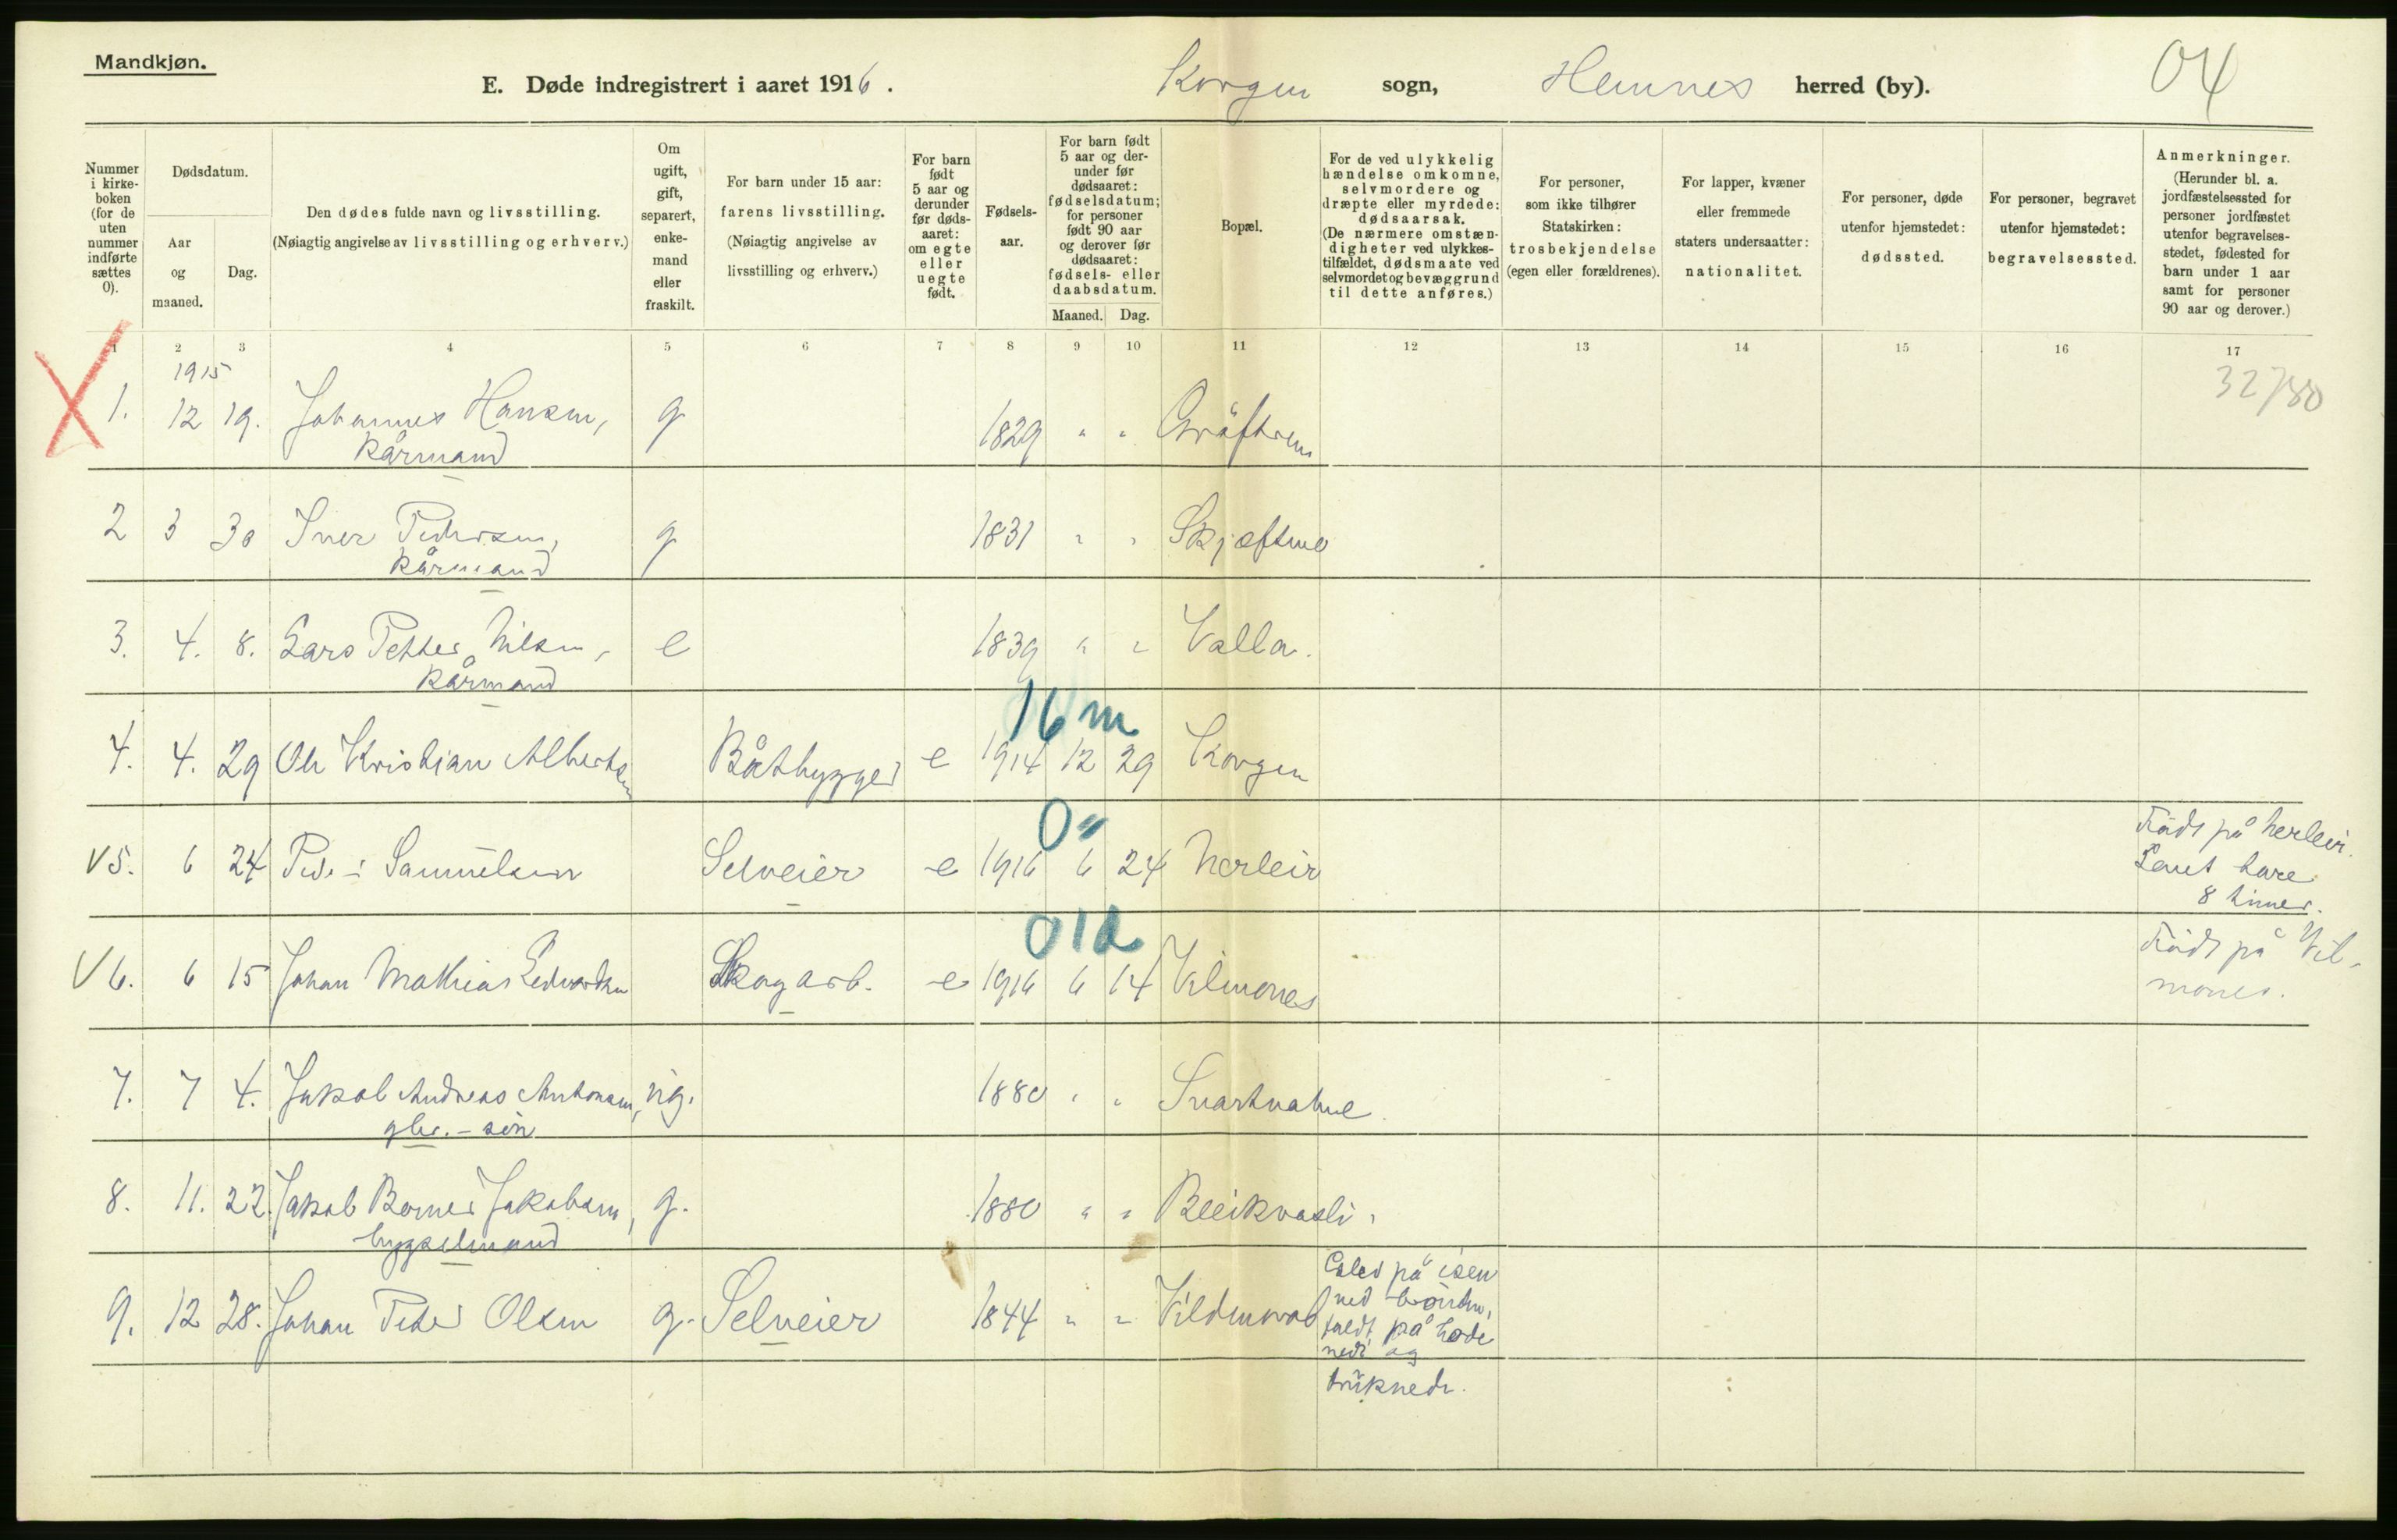 Mandkjøn.
E. Døde indregistrert i aaret 1916. Korgen sogn, Hemnes herred (by). 04
Nummer i kirke-boken (for de uten nummer indførte sættes 0).
Dødsdatum.
Aar og maaned.
Dag.
Den dødes fulde navn og livsstilling.
(Nøiagtig angivelse av livsstilling og erhverv.)
Om ugift, gift, separert, enke-mand eller fraskilt.
For barn under 15 aar:
farens livsstilling.
(Nøiagtig angivelse av
livsstilling og erhverv.)
For barn født 5 aar og derunder før døds-aaret: om egte eller uegte født.
Fødsels-aar.
For barn født 5 aar og der-under før dødsaaret: fødselsdatum; for personer født 90 aar og derover før dødsaaret: fødsels- eller daabsdatum.
Maaned. Dag.
Bopæl.
For de ved ulykkelig hændelse omkomne, selvmordere og dræpte eller myrdede: dødsaarsak. (De nærmere omstæn-digheter ved ulykkes-tilfældet, dødsmaate ved selvmordet og bevæggrund til dette anføres.)
For personer, som ikke tilhører Statskirken: trosbekjendelse (egen eller forældrenes).
For lapper, kvæner eller fremmede staters undersaatter: nationalitet.
For personer, døde utenfor hjemstedet: dødssted.
For personer, begravet utenfor hjemstedet: begravelsessted.
Anmerkninger. (Herunder bl. a. jordfæstelsessted for personer jordfæstet utenfor begravelses-stedet, fødested for barn under 1 aar samt for personer 90 aar og derover.)
1 2 3 4 5 6 7 8 9 10 11 12 13 14 15 16 17
1915
32780
1. 12 19. Johannes Hansen, g 1829 " "
Kårmand
2 3 30 Iver Pedersen, g 1831 " " Skjæftmo
Kårmand
3. 4. 8. Lars Petter Nilsen, e 1839 " " Valla.
Kårmand
16 m
4. 4. 29 Ole Kristian Albertsen Båtbygger e 1914 12 29 Korgen
0
V 5. 6 24 Peder Samuelsen Selveier e 1916 6 24 Nerleir
Född på Nerleir.
Levet bare
8 timer.
01d
V 6. 6 15 Johan Mathias Edvardsen Skogarb. e 1916 6 14 Vilmones
Född på Vil-
mones.
7. 7 4. Jakob Andreas Antonsen, ug. 1880 " " Svartvatne
gbr. - søn
8. 11. 22. Jakob Bornes Jakobsen, g. 1880 " " Bleikvasli.
bygselmand
9. 12 28. Johan Peter Olsen g. Selveier 1844 " "
på isen
ned
faldt på hode
ned og
druknede.